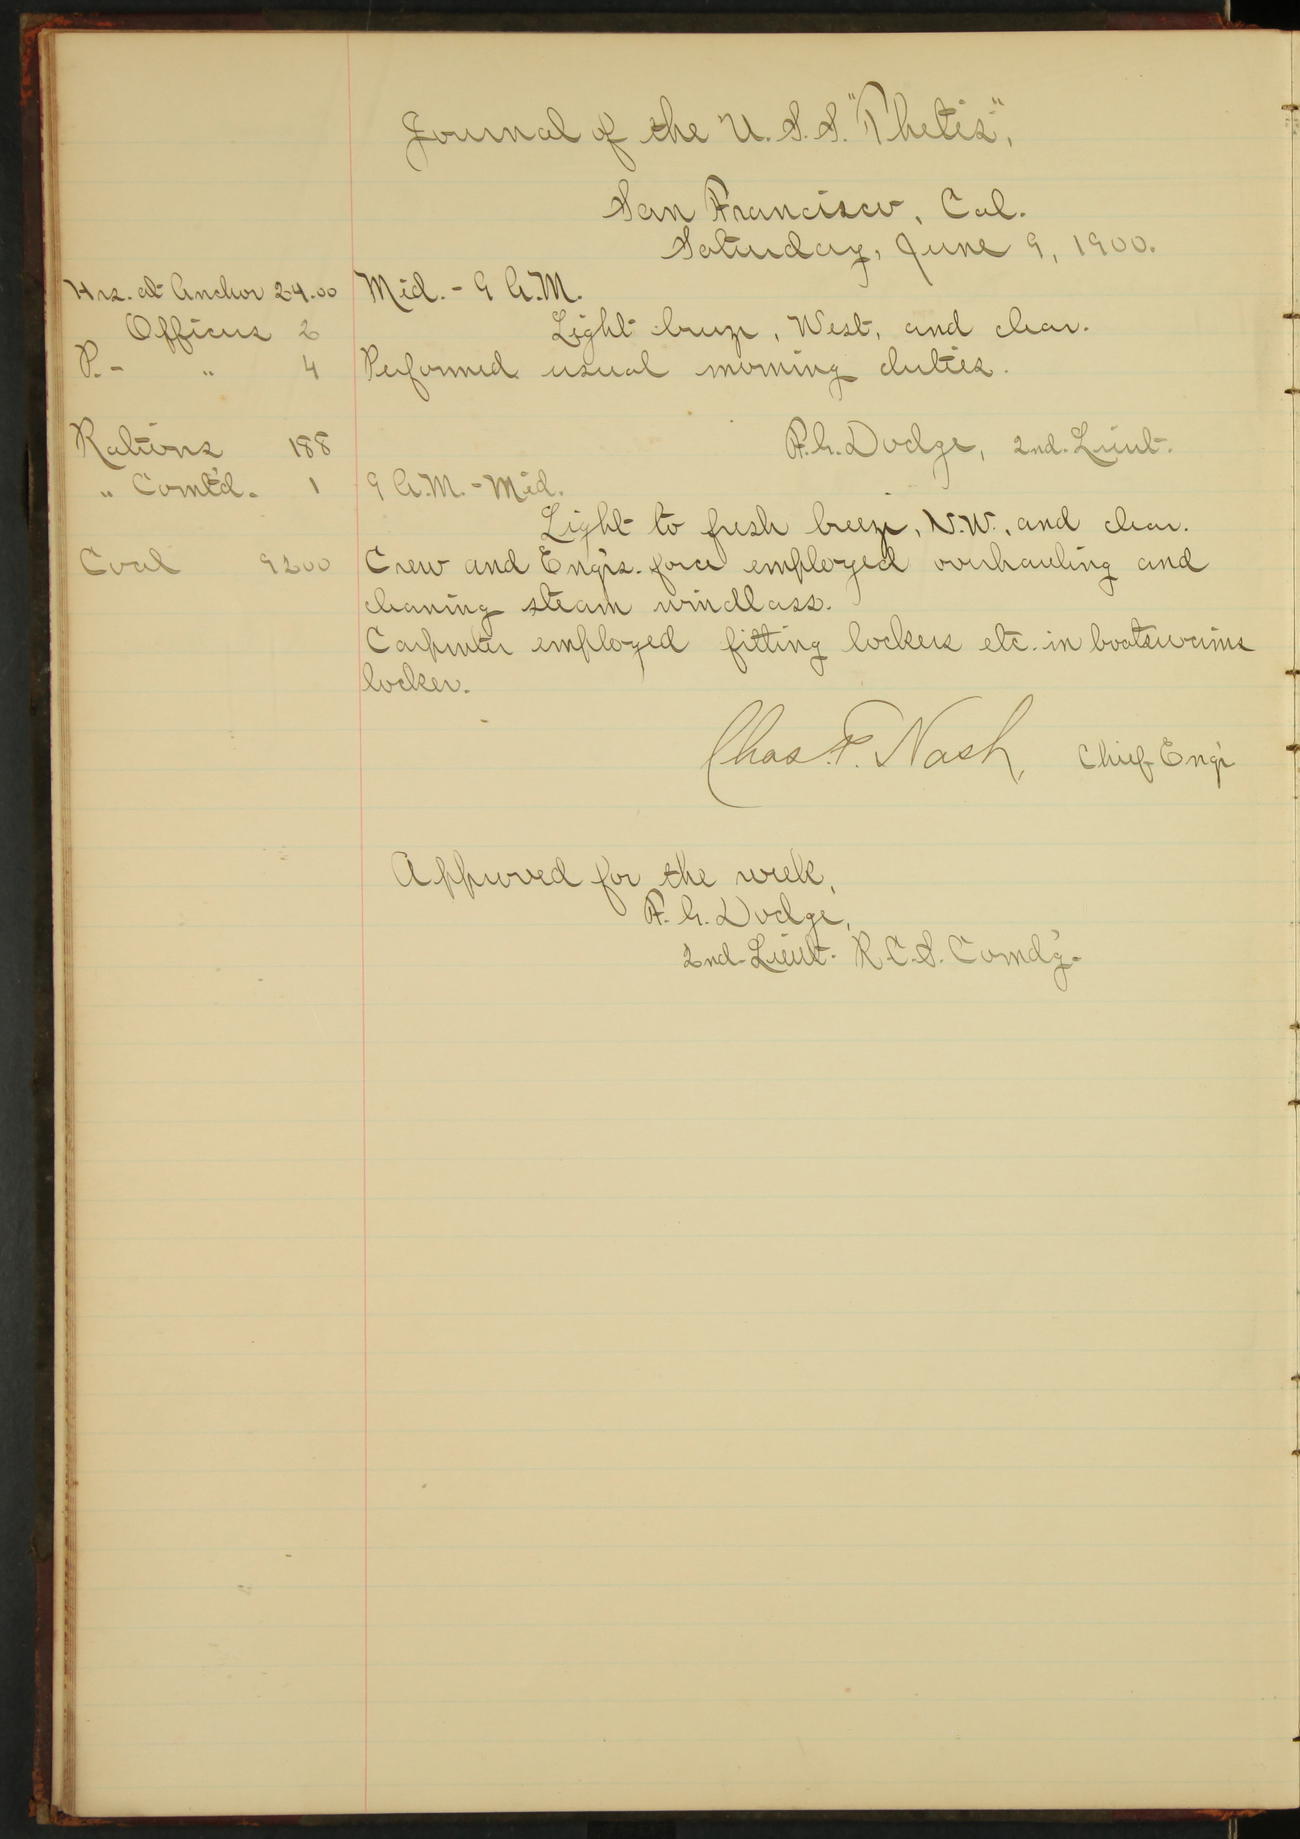 Journal of the U.S.S. "Thetis",
San Francisco, Cal.
Saturday, June 9, 1900.
Hrs. at Anchor 24.00
Officers 2
P.- " 4
Rations 188
" Comt'd. 1
Coal 9200
Mid. - 9 A.M.
Light breeze, West, and clear.
Performed usual morning duties.
F.G. Dodge, 2nd. Lieut.
9 A.M. - Mid.
Light to fresh breeze, N.W., and clear.
Crew and Eng'rs. force employed overhauling and
cleaning steam windlass.
Carpenter employed fitting lockers etc. in boatswains
locker.
Chas. F. Nash, Chief Eng'r
Approved for the week,
F. G. Dodge,
2nd. Lieut. R.C.S. Comd'g.